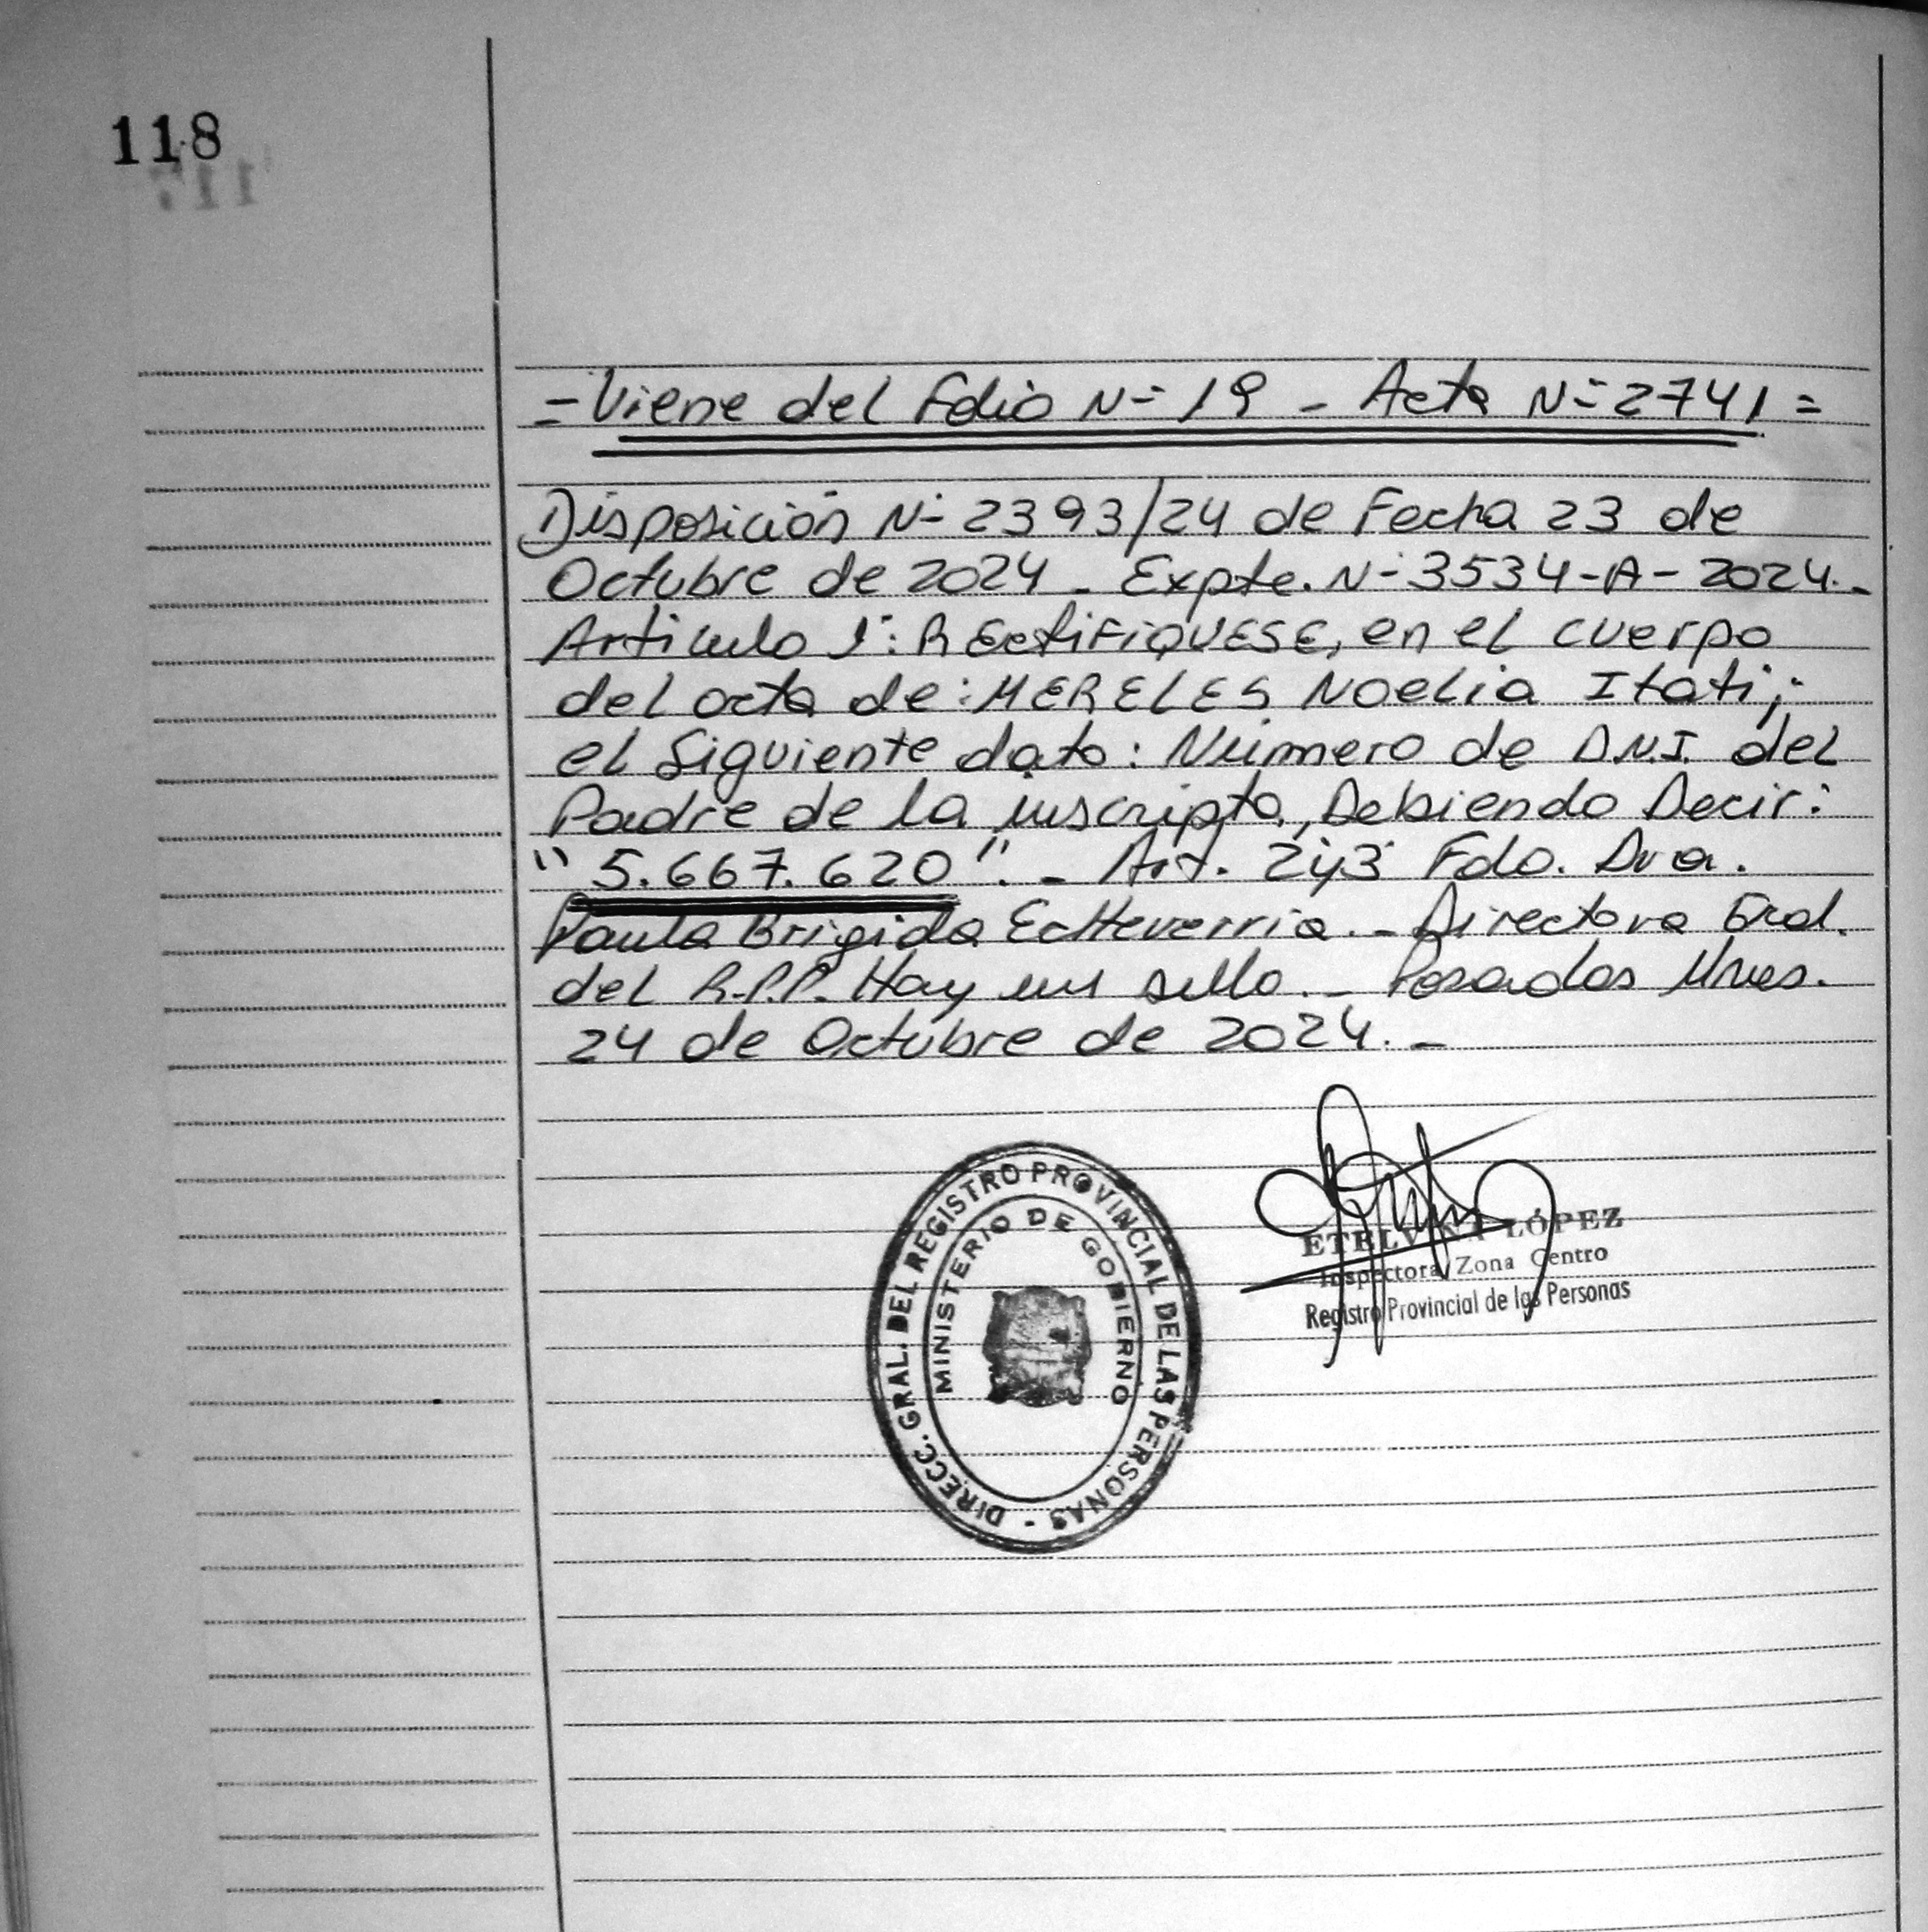 118
= Viene del Folio N- 19 - Acta N- 2741 =
Disposición N- 2393/24 de Fecha 23 de
Octubre de 2024 - Expte. N- 3534-A- 2024.-
Articulo 1°: RECtiFIQUESE, en el cuerpo
del acta de: MERELES, NOelia Itati;-
el Siguiente dato: Número de D.N.I. del
Padre de la inscripta, Debiendo Decir:
" 5.667.620 ". - Art. 2y3 Fdo. Dra.
Paula Brigida EcHeverria. - Directora Gral.
del R.P.P. Hay un sello. - Posadas Mnes.
24 de Octubre de 2024. -
DIRECC. GRAL. DEL REGISTRO PROVINCIAL DE LAS PERSONAS -
MINISTERIO DE GOBIERNO
ETELVINA LÓPEZ
Inspectora Zona Centro
Registro Provincial de las Personas